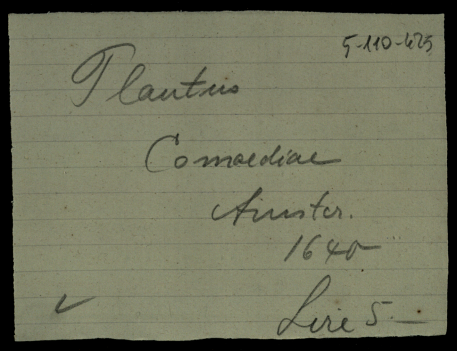 5-110-425
Plautus
Comoediae
Amster.
1640
Lire 5 —